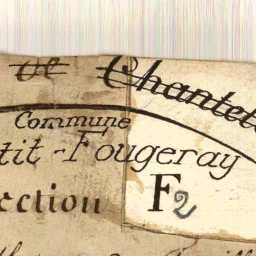 de Chantel
Commune
tit-Fougeray
ection F2